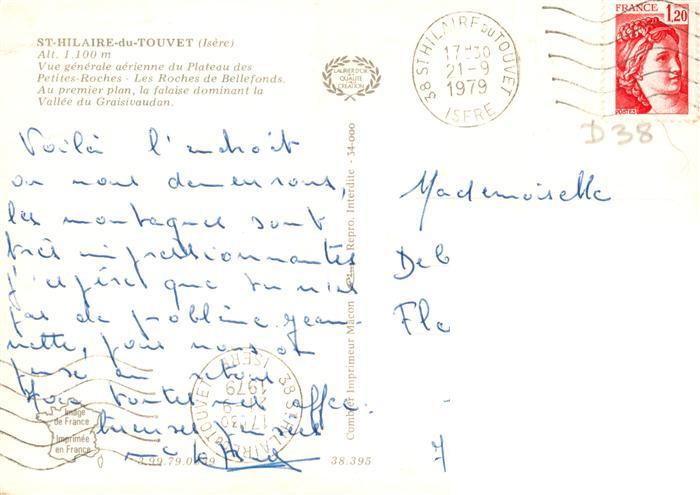 ST-HILAIRE-du-TOUVET (Isère)
Alt. 1.100 m
Vue générale aérienne du Plateau des
Petites-Roches - Les Roches de Bellefonds.
Au premier plan, la falaise dominant la
Vallée du Graisivaudan.
LAURIER D'OR
QUALITÉ
CRÉATION
38 ST HILAIRE DU TOUVET
17H30
21-9
1979
ISERE
FRANCE
1,20
POSTES
D38
Voilà l'endroit
ou nous demeurons,
les montagnes sont
très impressionnantes
j'espère que tu n'as
pas de problème Jean-
nette, pour nous on
pense au retour
Avec toutes nos affec-
tueuses pensées
Mademoiselle
Deb
Fle
7
Combier Imprimeur Macon
Repro. Interdite - 34-000
38 ST HILAIRE DU TOUVET
17H30
1979
ISERE
Image
de France
Imprimée
en France
38.395